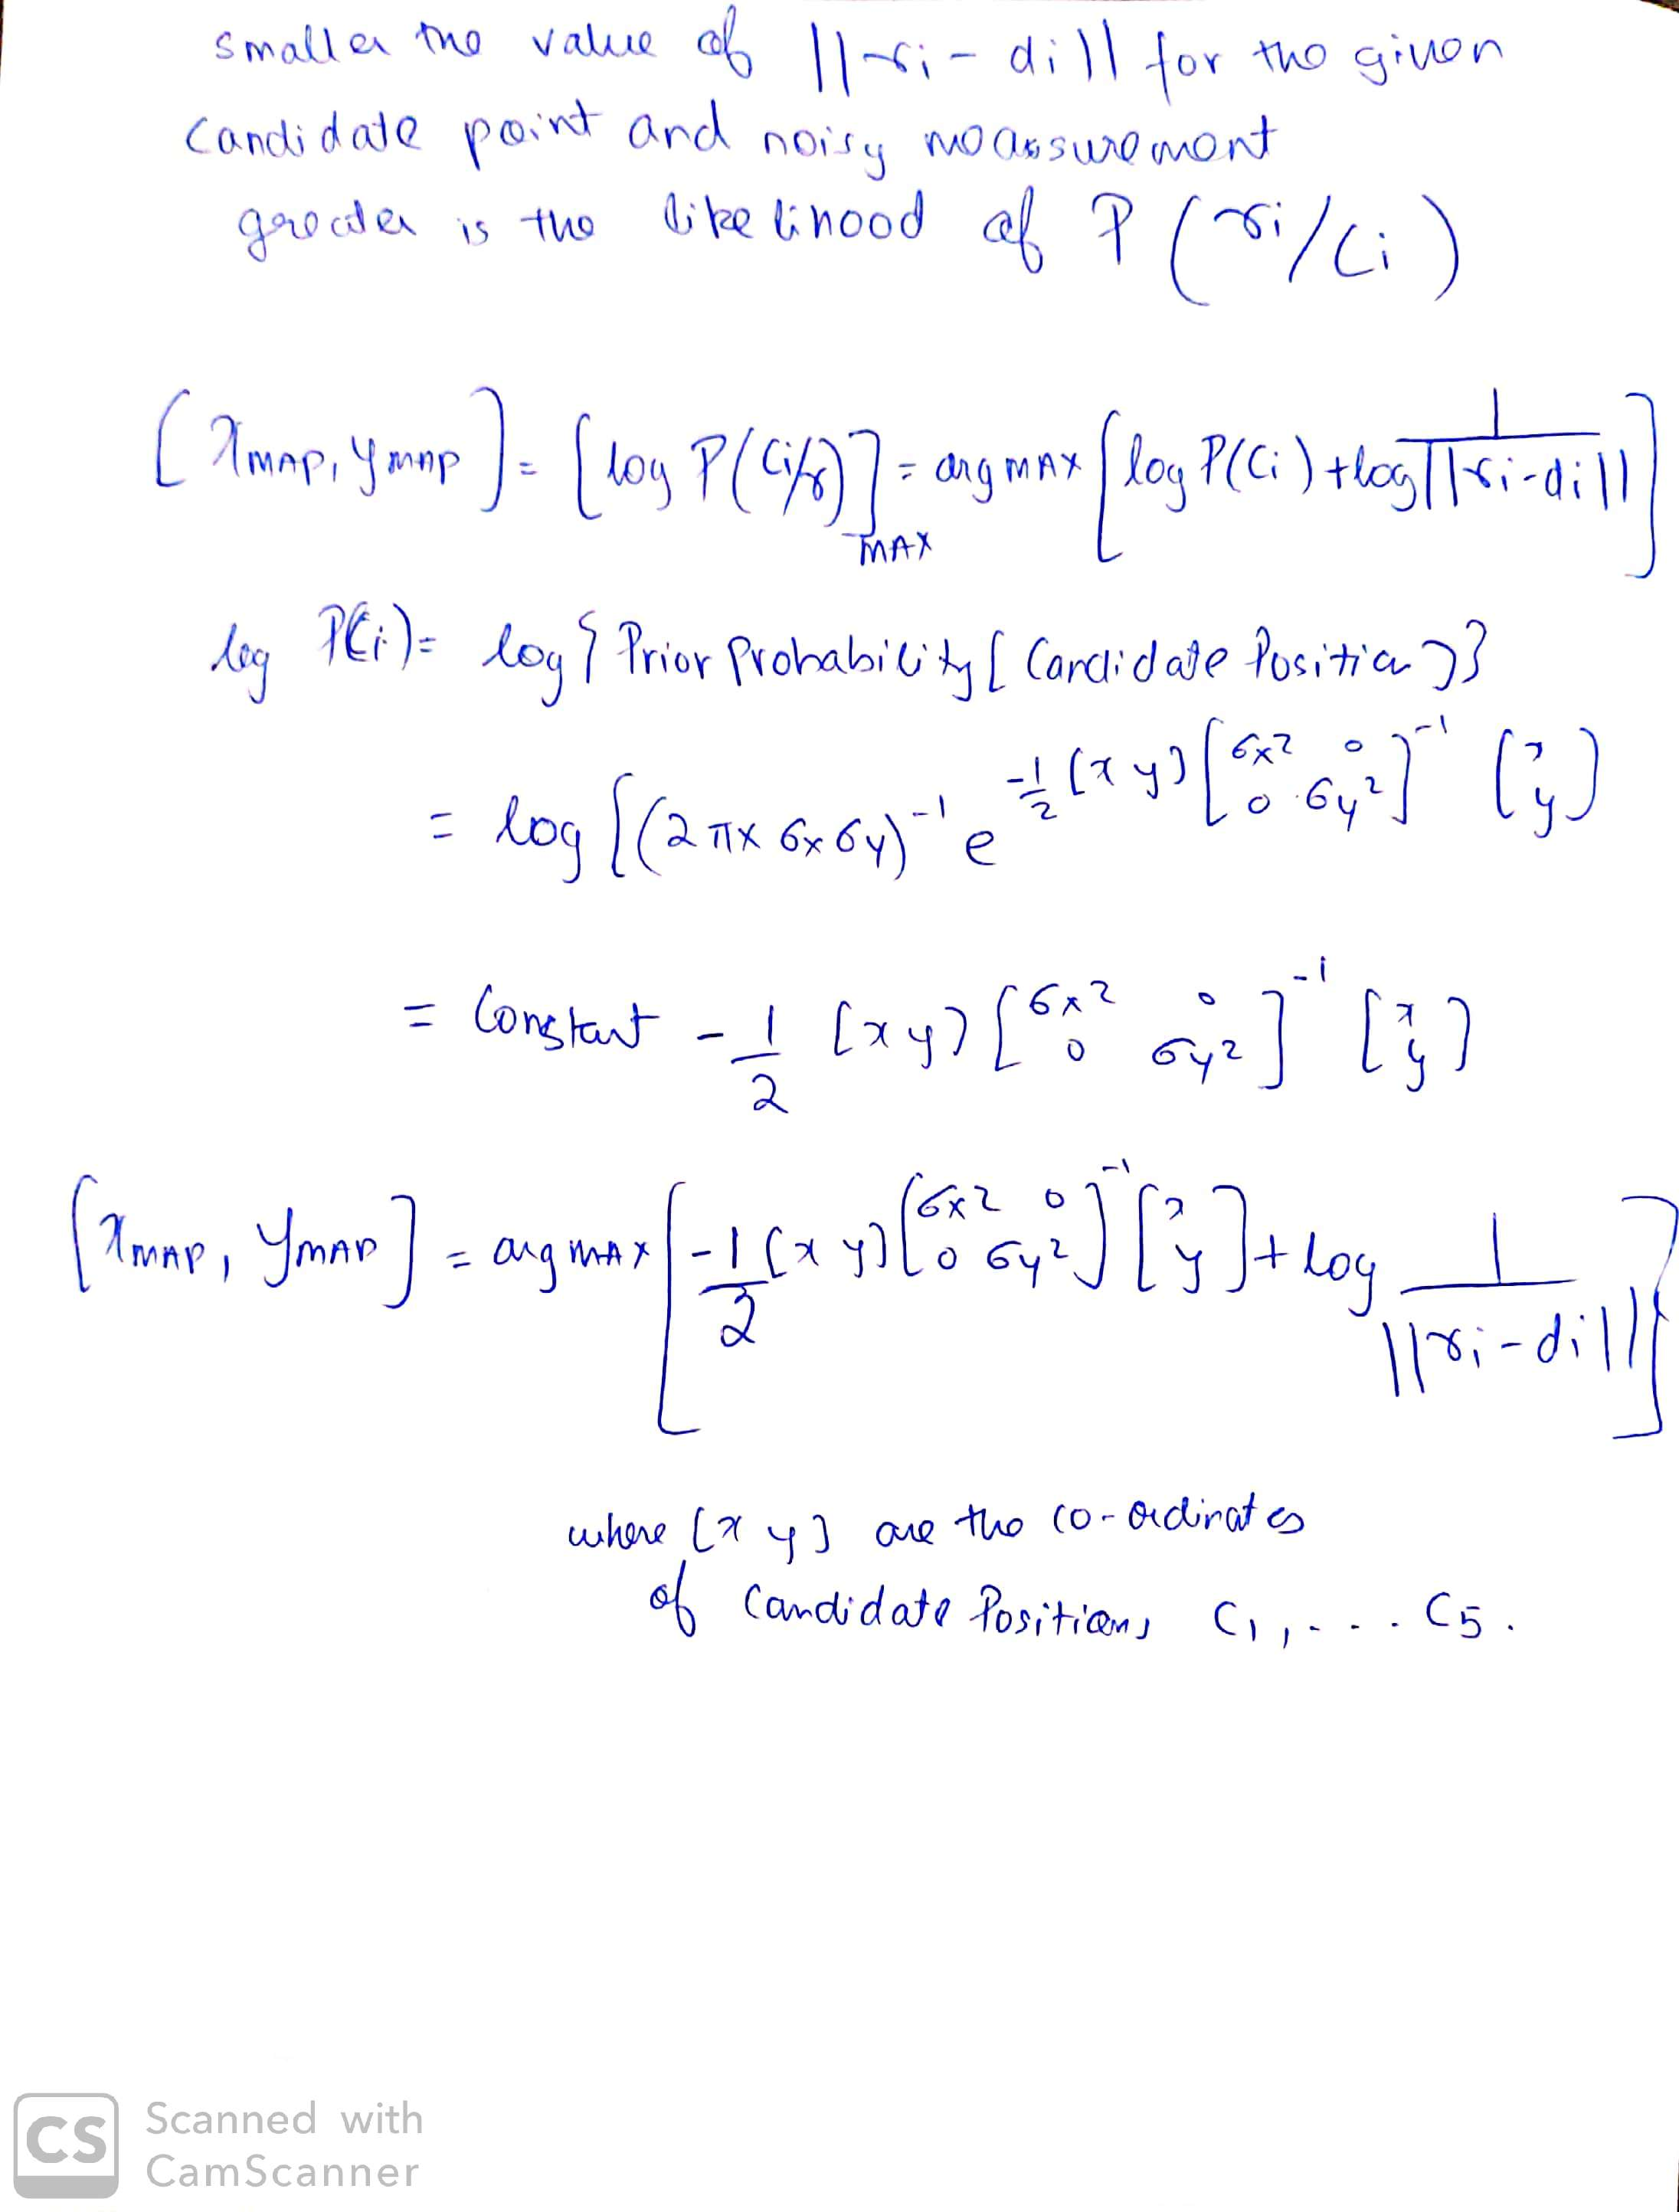 smaller the value of ||ri - di|| for the given
candidate point and noisy measurement
greater is the likelihood of P (ri/Ci)
[xMAP, yMAP] = [log P(Ci/r)]MAX = arg MAX [log P(Ci) + log 1/||ri-di||]
log P(Ci) = log { Prior Probability [Candidate Position] }
= log [(2π× σx σy)^-1 e^(-1/2 [x y] [σx² 0; 0 σy²]^-1 [x; y])
= Constant - 1/2 [x y] [σx² 0; 0 σy²]^-1 [x; y]
[xMAP, yMAP] = arg MAX [-1/2 [x y] [σx² 0; 0 σy²]^-1 [x; y] + log 1/||ri-di||]
where [x y] are the co-ordinates
of Candidate Positions C1, .... C5.
CS Scanned with
CamScanner